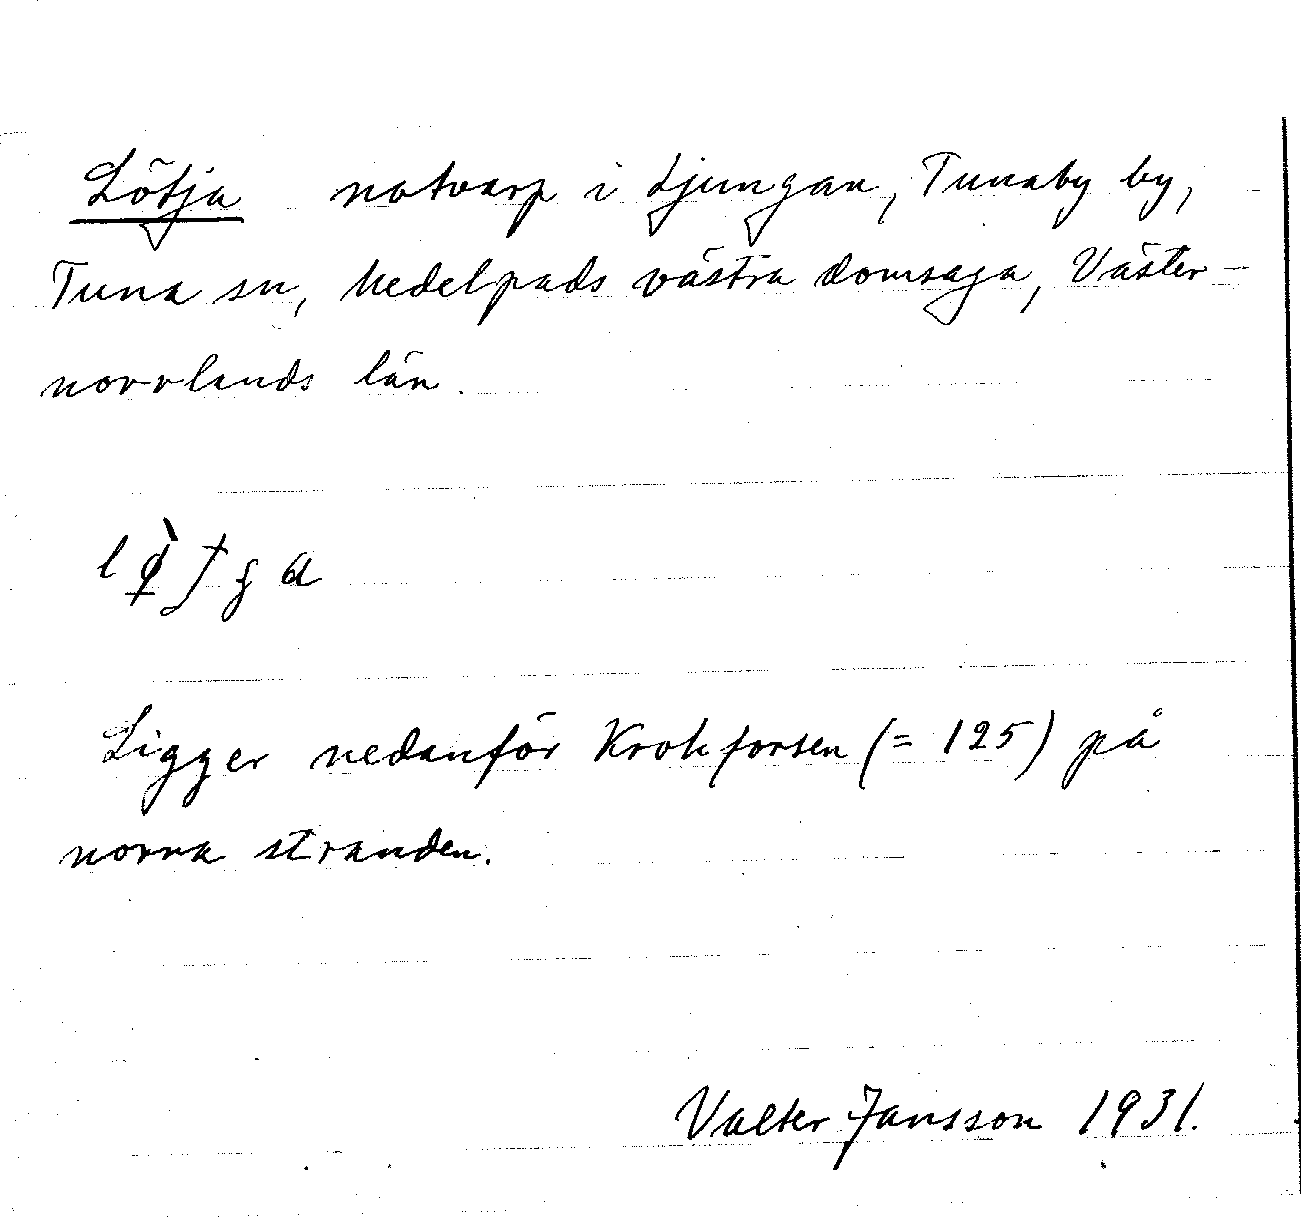 Lötja notvarp i Ljungan, Tunaby by,
Tuna sn, Medelpads västra domsaga, Väster-
norrlands län.
Ligger nedanför Krokforsen (= 125) på
norra stranden.
Valter Jansson 1931.